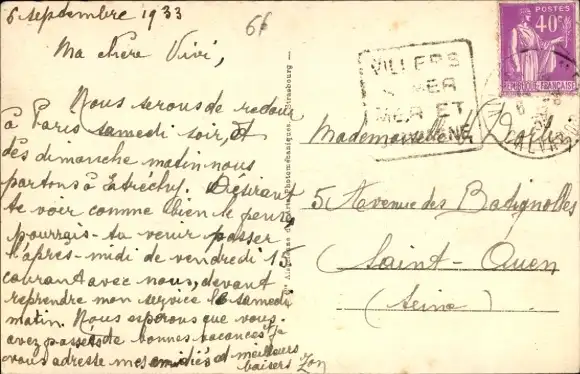 6 septembre 1933
6f
Ma chère Vivi,
Nous serons de retour
à Paris samedi soir, et
dès dimanche matin nous
partons à Etréchy. Désirant
te voir comme bien tu penses,
pourrais-tu venir passer
l'après-midi de vendredi 15
courant avec nous, devant
reprendre mon service le samedi
matin. Nous espérons que vous
avez passés de bonnes vacances et je
vous adresse mes amitiés et meilleurs
baisers
VILLERS
MER
MER ET
POSTES
40c
REPUBLIQUE FRANÇAISE
Mademoiselle
5 Avenue des Batignolles
Saint-Ouen
(Seine)